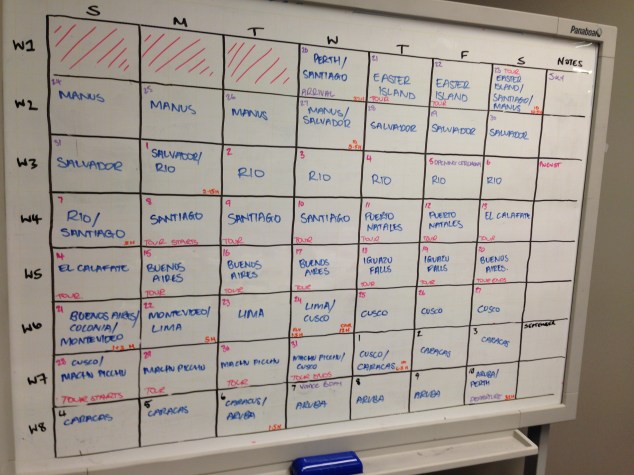 Panaboard
S M T W T F S NOTES
W1
20 PERTH/
SANTIAGO
ARRIVAL
21
EASTER
ISLAND
TOUR
22
EASTER
ISLAND
TOUR
23 TOUR
EASTER
ISLAND/
SANTIAGO/
MANUS
July
W2
24
MANUS
25
MANUS
26
MANUS
27
MANUS/
SALVADOR
28
SALVADOR
29
SALVADOR
30
SALVADOR
W3
31
SALVADOR
1
SALVADOR/
RIO
2
RIO
3
RIO
4
RIO
5 OPENING CEREMONY
RIO
6
RIO
AUGUST
W4
7
RIO/
SANTIAGO
8
SANTIAGO
TOUR STARTS
9
SANTIAGO
TOUR
10
SANTIAGO
TOUR
11
PUERTO
NATALES
TOUR
12
PUERTO
NATALES
TOUR
13
EL CALAFATE
TOUR
W5
14
EL CALAFATE
TOUR
15
BUENOS
AIRES
TOUR
16
BUENOS
AIRES
TOUR
17
BUENOS
AIRES
TOUR
18
IGUAZU
FALLS
TOUR
19
IGUAZU
FALLS
TOUR
20
BUENOS
AIRES
TOUR ENDS
W6
21
BUENOS AIRES/
COLONIA/
MONTEVIDEO
22
MONTEVIDEO/
LIMA
23
LIMA
24
LIMA/
CUSCO
25
CUSCO
26
CUSCO
27
CUSCO
SEPTEMBER
W7
28 CUSCO/
MACHU PICCHU
TOUR STARTS
29
MACHU PICCHU
TOUR
30
MACHU PICCHU
TOUR
31
MACHU PICCHU/
CUSCO
TOUR ENDS
1
CUSCO/
CARACAS
2
CARACAS
3
CARACAS
W8
4
CARACAS
5
CARACAS
6
CARACUS/
ARUBA
7
ARUBA
8
ARUBA
9
ARUBA
10
ARUBA/
PERTH
DEPARTURE